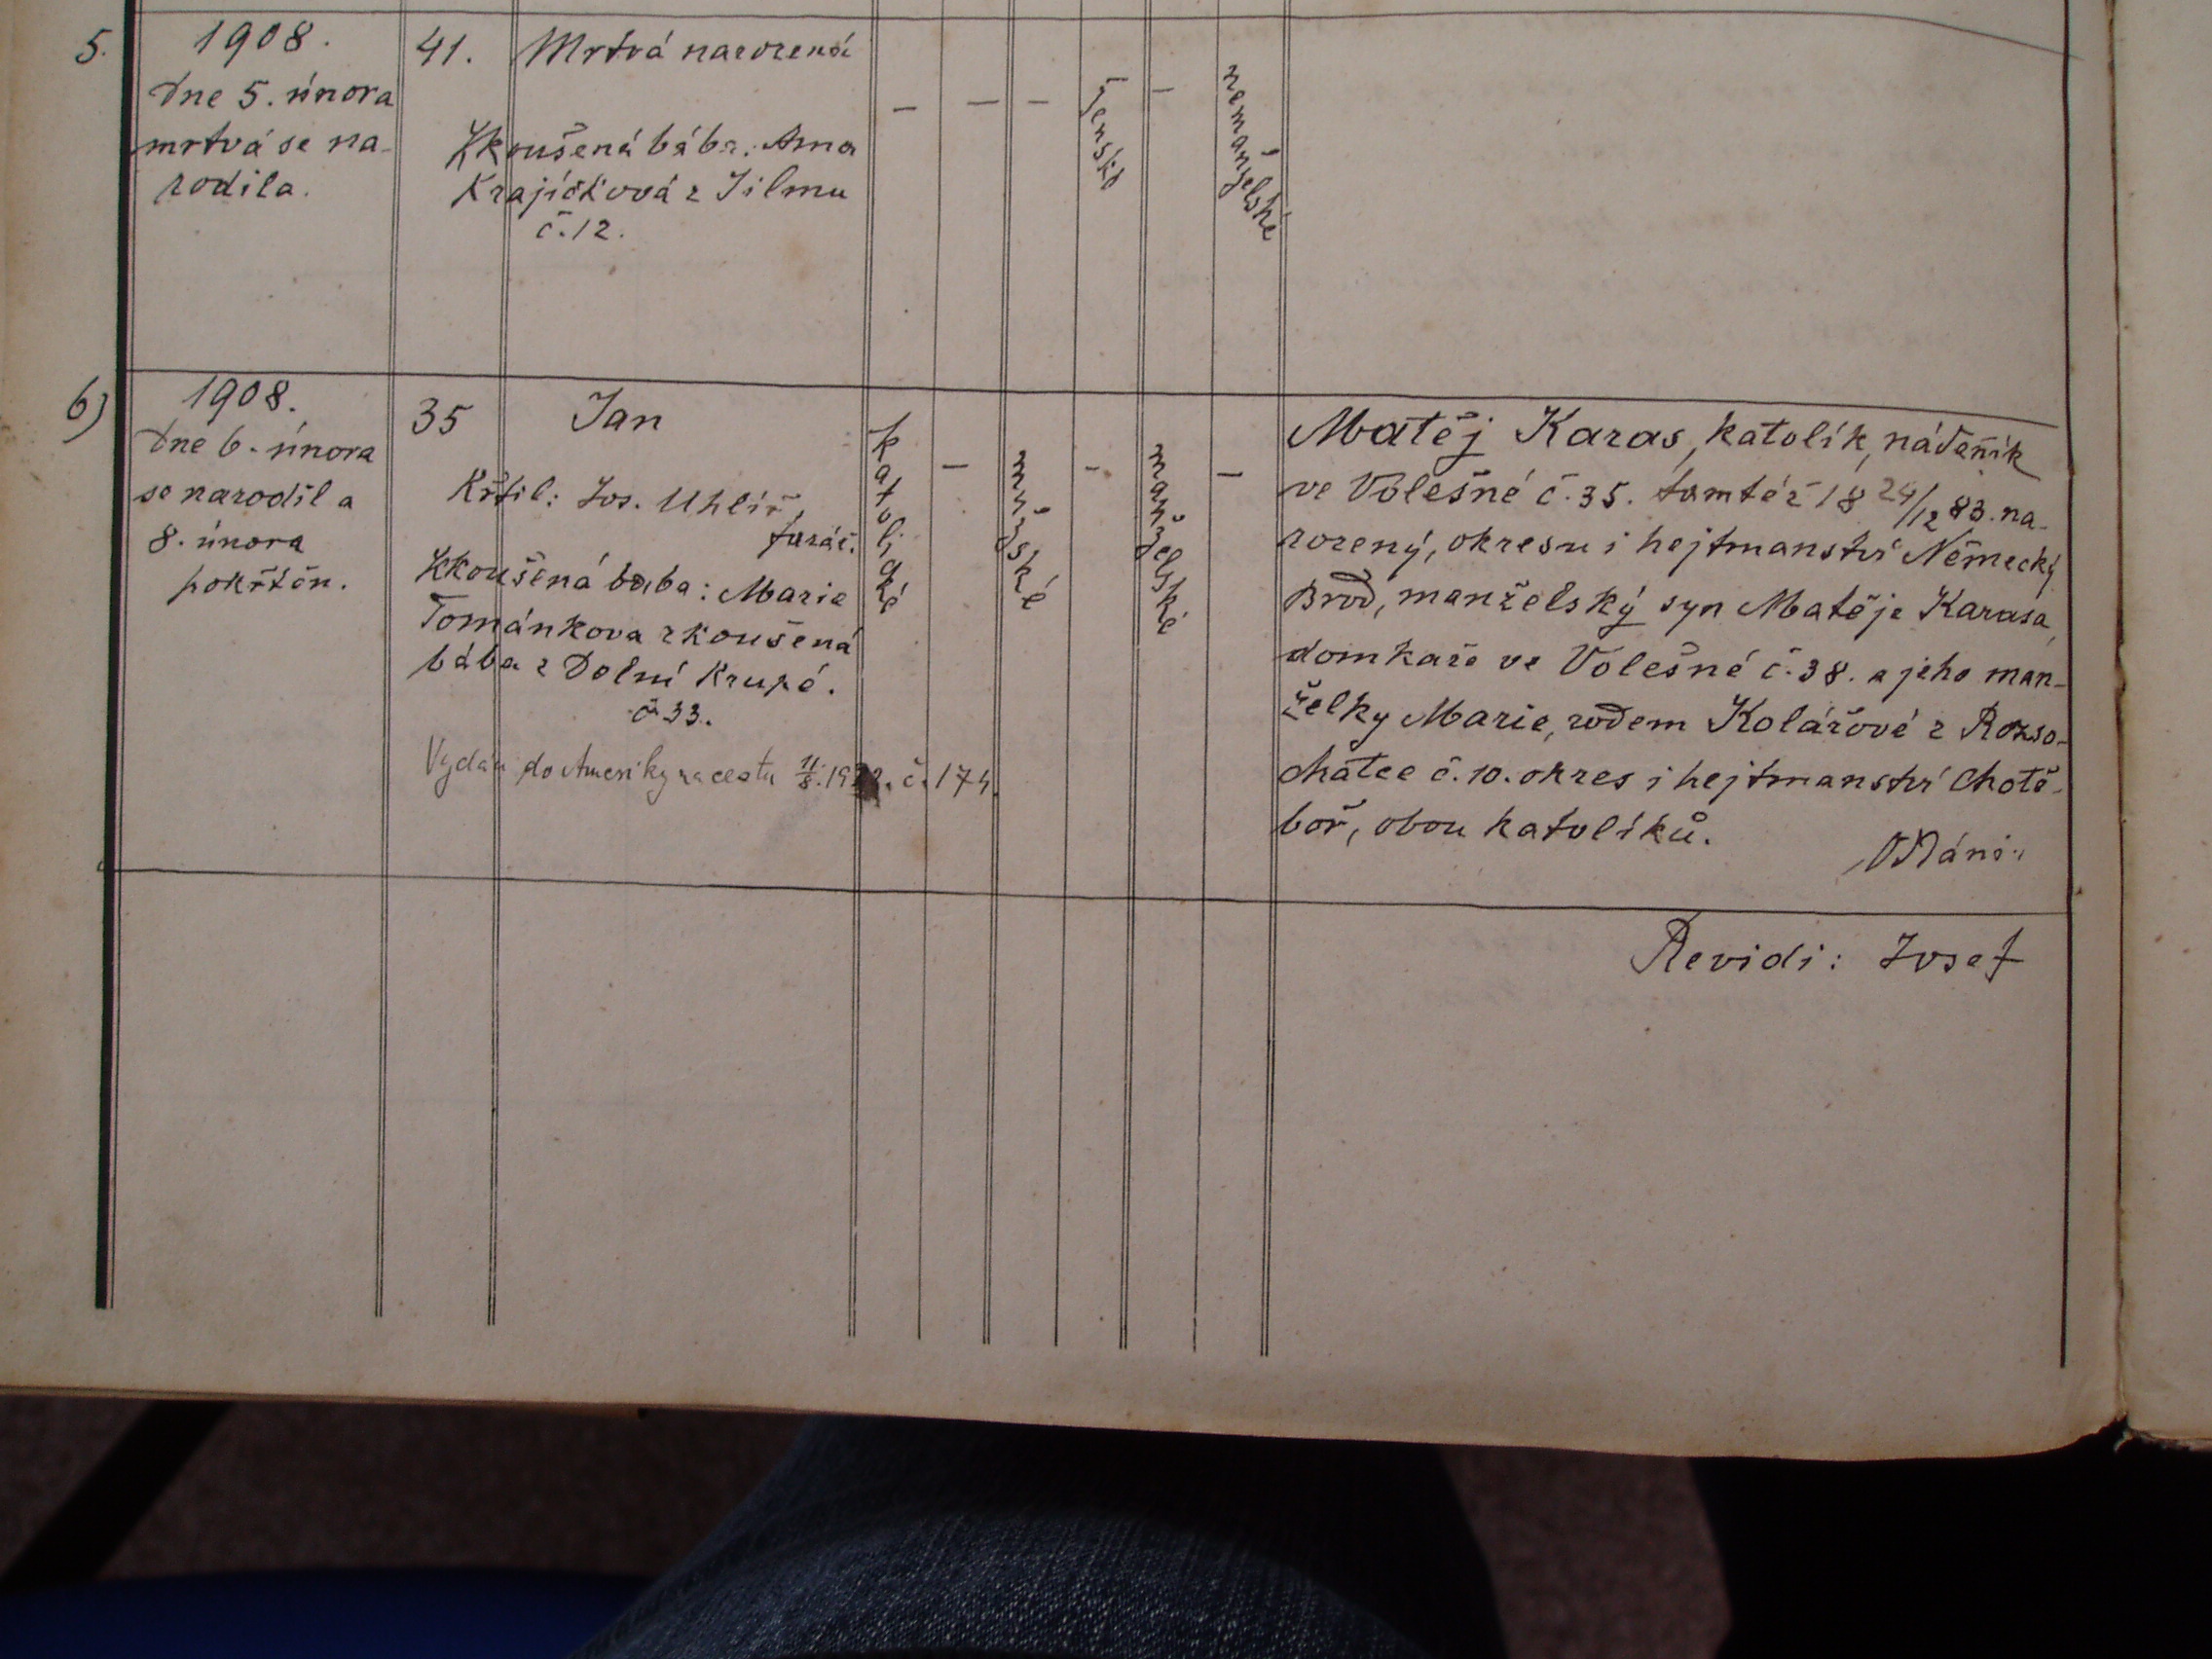 5.
1908.
dne 5. února
mrtvá se na-
rodila.
41.
Mrtvá narozená
Zkoušená bába: Anna
Krajíčková z Jilmu
č. 12.
–
–
–
ženské
–
nemanželské
6)
1908.
dne 6. února
se narodil a
8. února
pokřtěn.
35
Jan
Křtil: Jos. Uhlíř,
farář.
Zkoušená baba: Marie
Tománkova zkoušená
bába z Dolní Krupé.
č 33.
Vydán do Ameriky na cestu 11/8. č. 174.
katolické
–
mužské
–
manželské
–
Matěj Karas, katolík, nádeník
ve Volešné č. 35. tamtéž 18 24/12 83. na-
rozený, okresu i hejtmanství Německý
Brod, manželský syn Matěje Karasa,
domkaře ve Volešné č. 38. a jeho man-
želky Marie, rodem Kolářové z Rozso-
chatce č. 10. okres i hejtmanství Chotě-
boř, obou katolíků.
Revidi: Josef